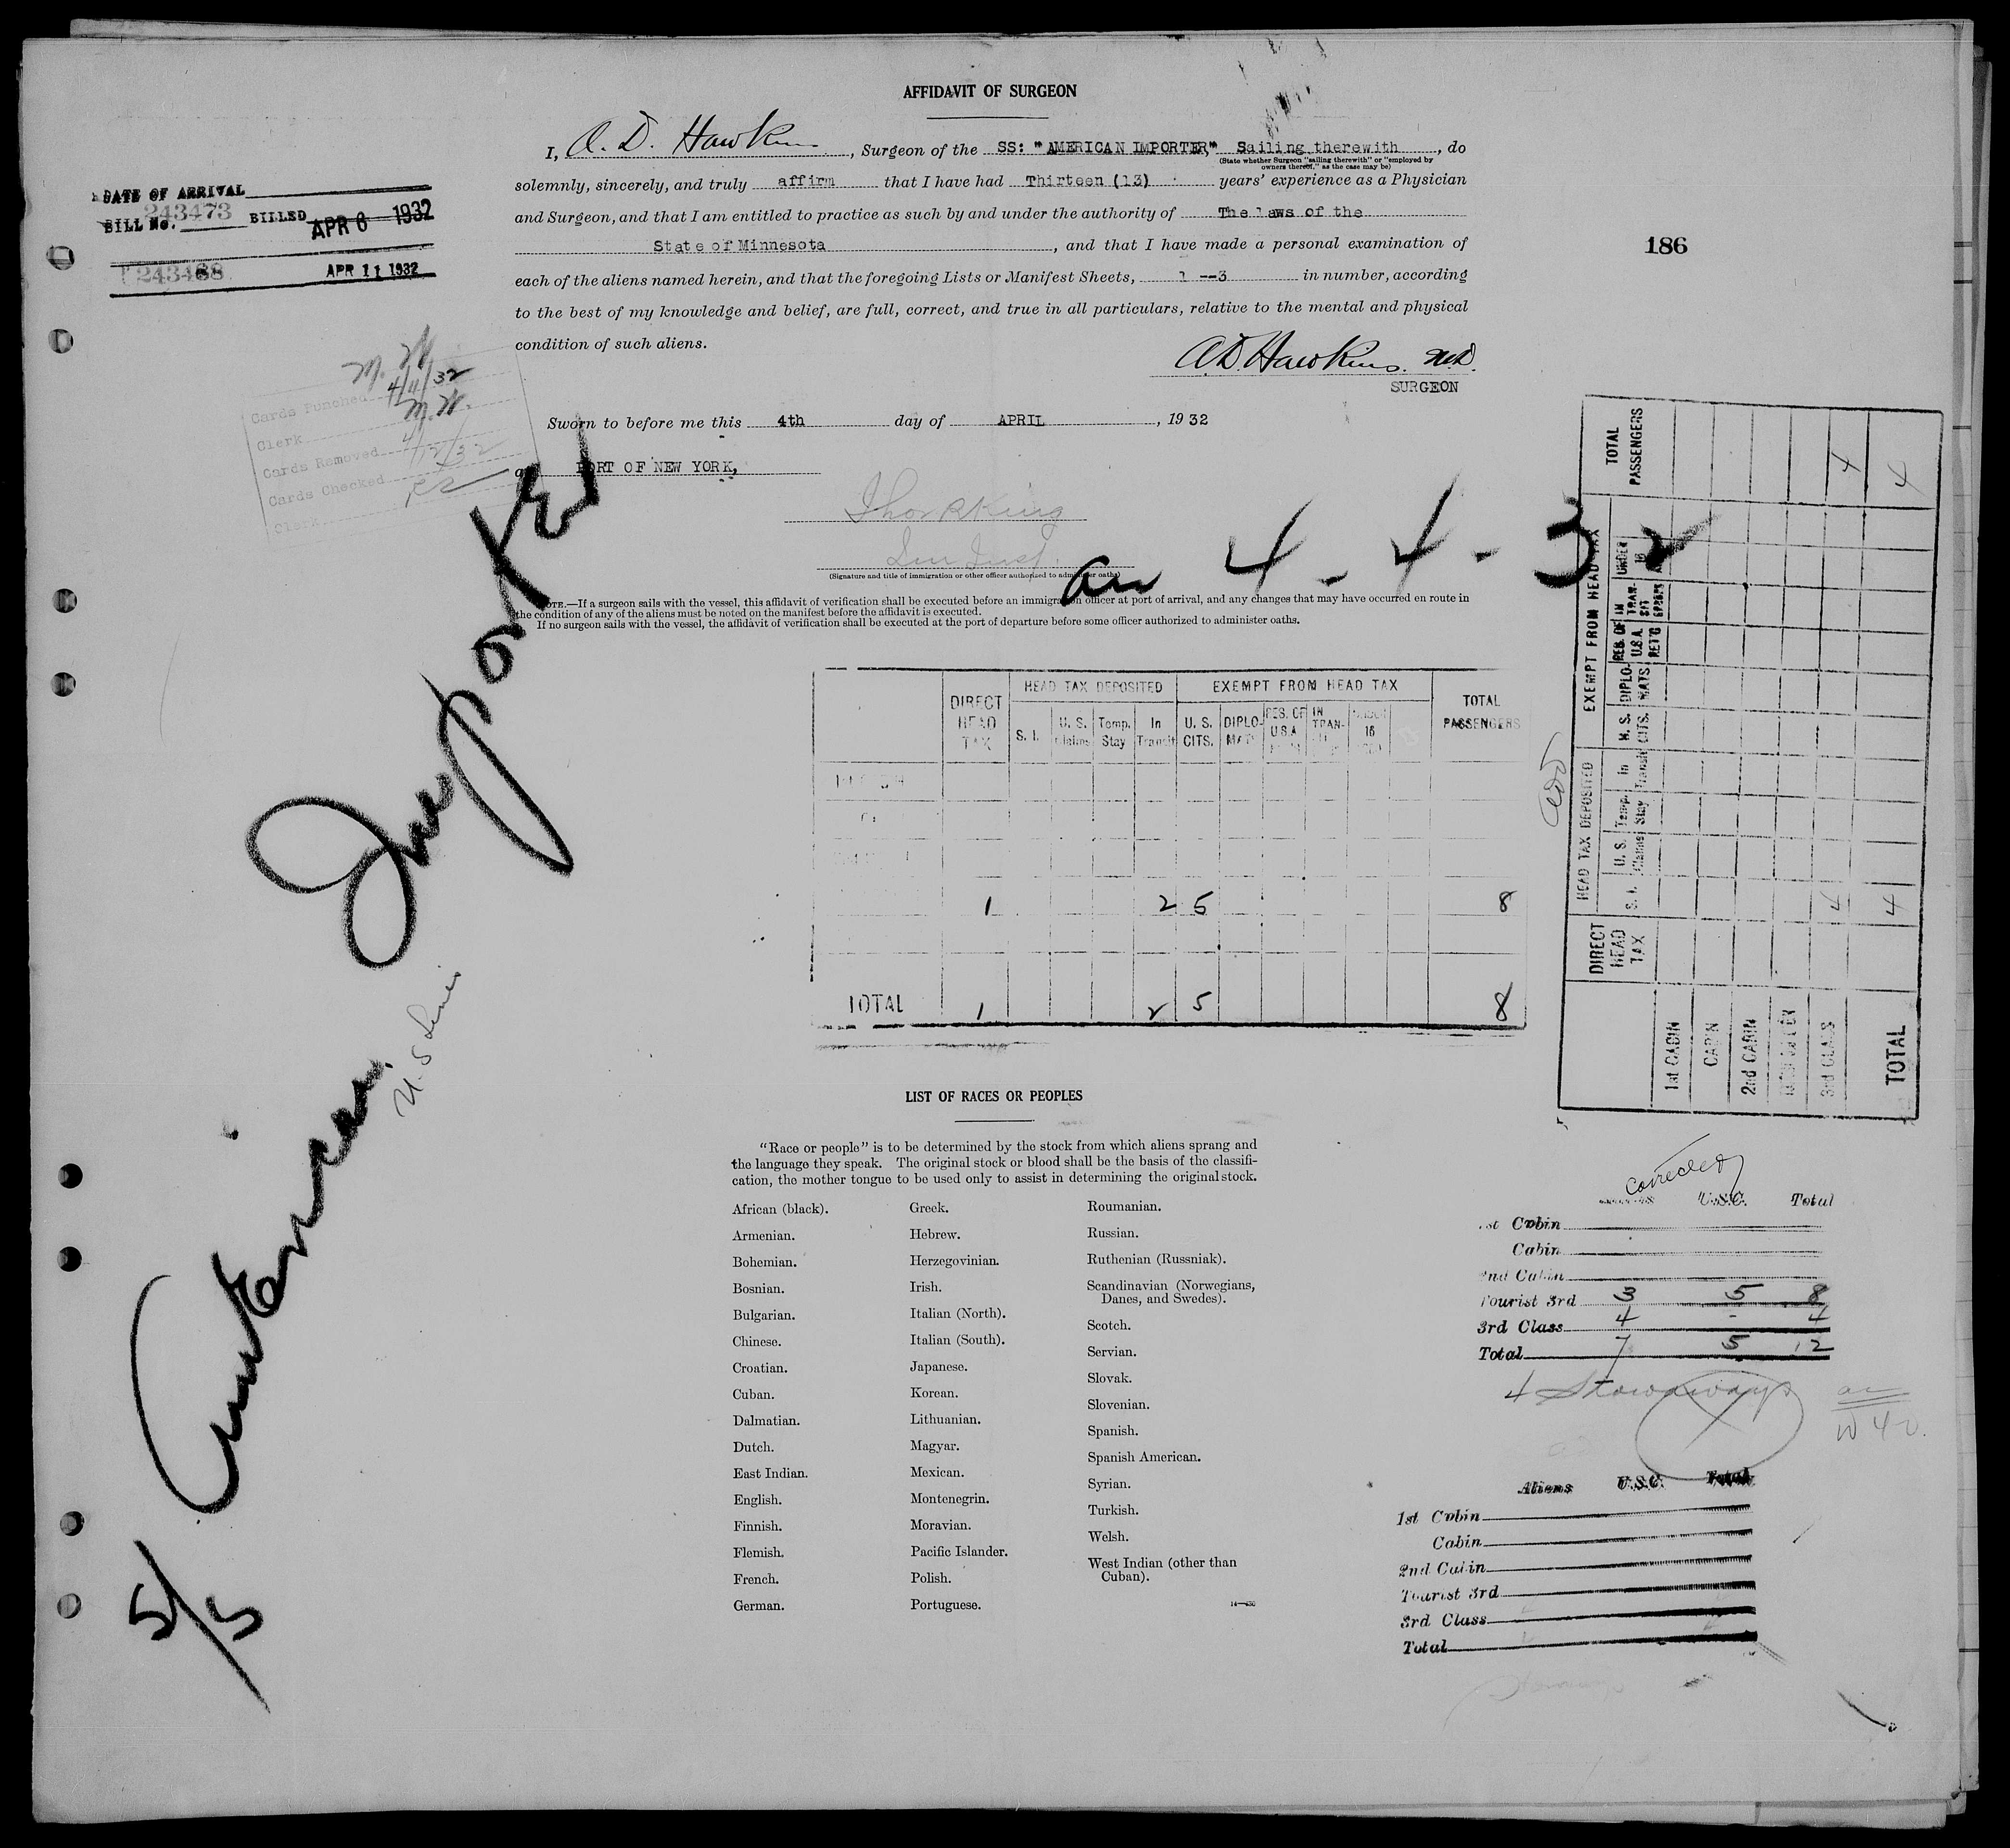 AFFIDAVIT OF SURGEON
I, A. D. Hawkins, Surgeon of the SS: "AMERICAN IMPORTER" Sailing therewith, do
(State whether Surgeon "sailing therewith" or "employed by owners thereof," as the case may be)
solemnly, sincerely, and truly affirm that I have had Thirteen (13) years' experience as a Physician
and Surgeon, and that I am entitled to practice as such by and under the authority of The laws of the
State of Minnesota, and that I have made a personal examination of
each of the aliens named herein, and that the foregoing Lists or Manifest Sheets, 1 --3 in number, according
to the best of my knowledge and belief, are full, correct, and true in all particulars, relative to the mental and physical
condition of such aliens.
A.D. Hawkins. M.D.
SURGEON
Sworn to before me this 4th day of APRIL, 1932
at PORT OF NEW YORK,
Thor R King
Imm Insp.
(Signature and title of immigration or other officer authorized to administer oaths)
NOTE.—If a surgeon sails with the vessel, this affidavit of verification shall be executed before an immigration officer at port of arrival, and any changes that may have occurred en route in
the condition of any of the aliens must be noted on the manifest before the affidavit is executed.
If no surgeon sails with the vessel, the affidavit of verification shall be executed at the port of departure before some officer authorized to administer oaths.
DATE OF ARRIVAL
BILL No. 243473 BILLED APR 6 1932
243488 APR 11 1932
186
Cards Punched 4/11/32
Clerk M.W.
Cards Removed 4/12/32
Cards Checked
Clerk
American Importer
U.S. Lines
5/5
arr 4-4-32
DIRECT HEAD TAX
HEAD TAX DEPOSITED
EXEMPT FROM HEAD TAX
TOTAL PASSENGERS
S. I. U. S. Claims Temp. Stay In Transit U. S. CITS. DIPLO- MATS RES. OF U.S.A. IN TRAN- 16
1 2 5 8
TOTAL 1 2 5 8
add
DIRECT HEAD TAX
HEAD TAX DEPOSITED
EXEMPT FROM HEAD TAX
TOTAL PASSENGERS
S. I. U. S. Claims Temp. Stay In Transit U. S. CITS. DIPLO- MATS RES. OF U.S.A. RET'G IN TRAN- SIT UNDER 16
1st CABIN
CABIN
2nd CABIN
3rd CLASS 4 4
TOTAL 4 4
LIST OF RACES OR PEOPLES
"Race or people" is to be determined by the stock from which aliens sprang and
the language they speak. The original stock or blood shall be the basis of the classifi-
cation, the mother tongue to be used only to assist in determining the original stock.
African (black).
Armenian.
Bohemian.
Bosnian.
Bulgarian.
Chinese.
Croatian.
Cuban.
Dalmatian.
Dutch.
East Indian.
English.
Finnish.
Flemish.
French.
German.
Greek.
Hebrew.
Herzegovinian.
Irish.
Italian (North).
Italian (South).
Japanese.
Korean.
Lithuanian.
Magyar.
Mexican.
Montenegrin.
Moravian.
Pacific Islander.
Polish.
Portuguese.
Roumanian.
Russian.
Ruthenian (Russniak).
Scandinavian (Norwegians,
Danes, and Swedes).
Scotch.
Servian.
Slovak.
Slovenian.
Spanish.
Spanish American.
Syrian.
Turkish.
Welsh.
West Indian (other than
Cuban).
corrected
U.S.C. Total
1st Cabin
Cabin
2nd Cabin
Tourist 3rd 3 5 8
3rd Class 4 - 4
Total 7 5 12
4 Stowaways
Aliens U.S.C. Total
1st Cabin
Cabin
2nd Cabin
Tourist 3rd
3rd Class
Total